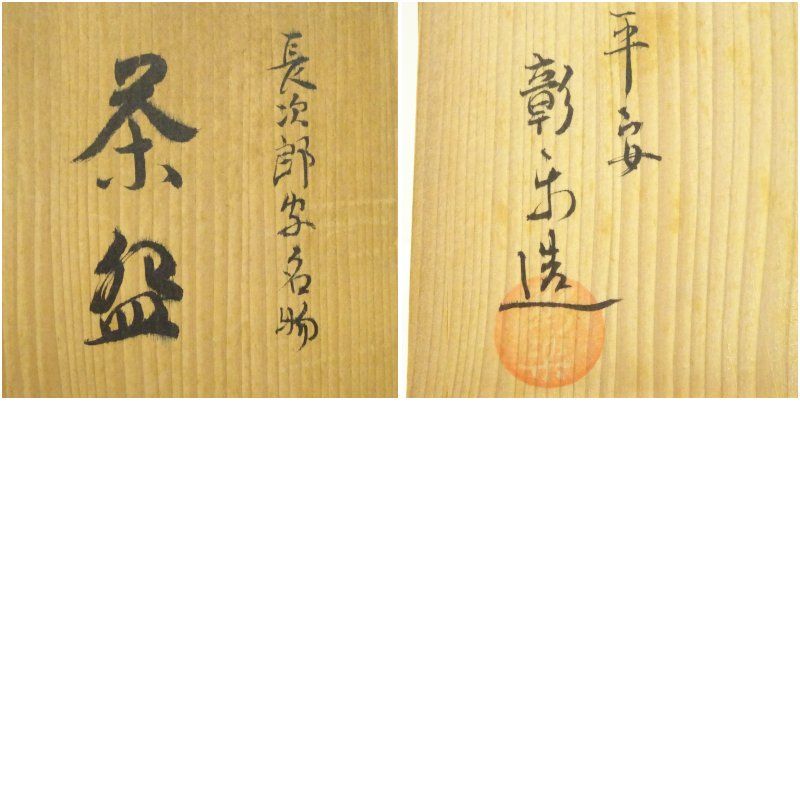 長次郎写名物
茶盌
平安
彰楽造